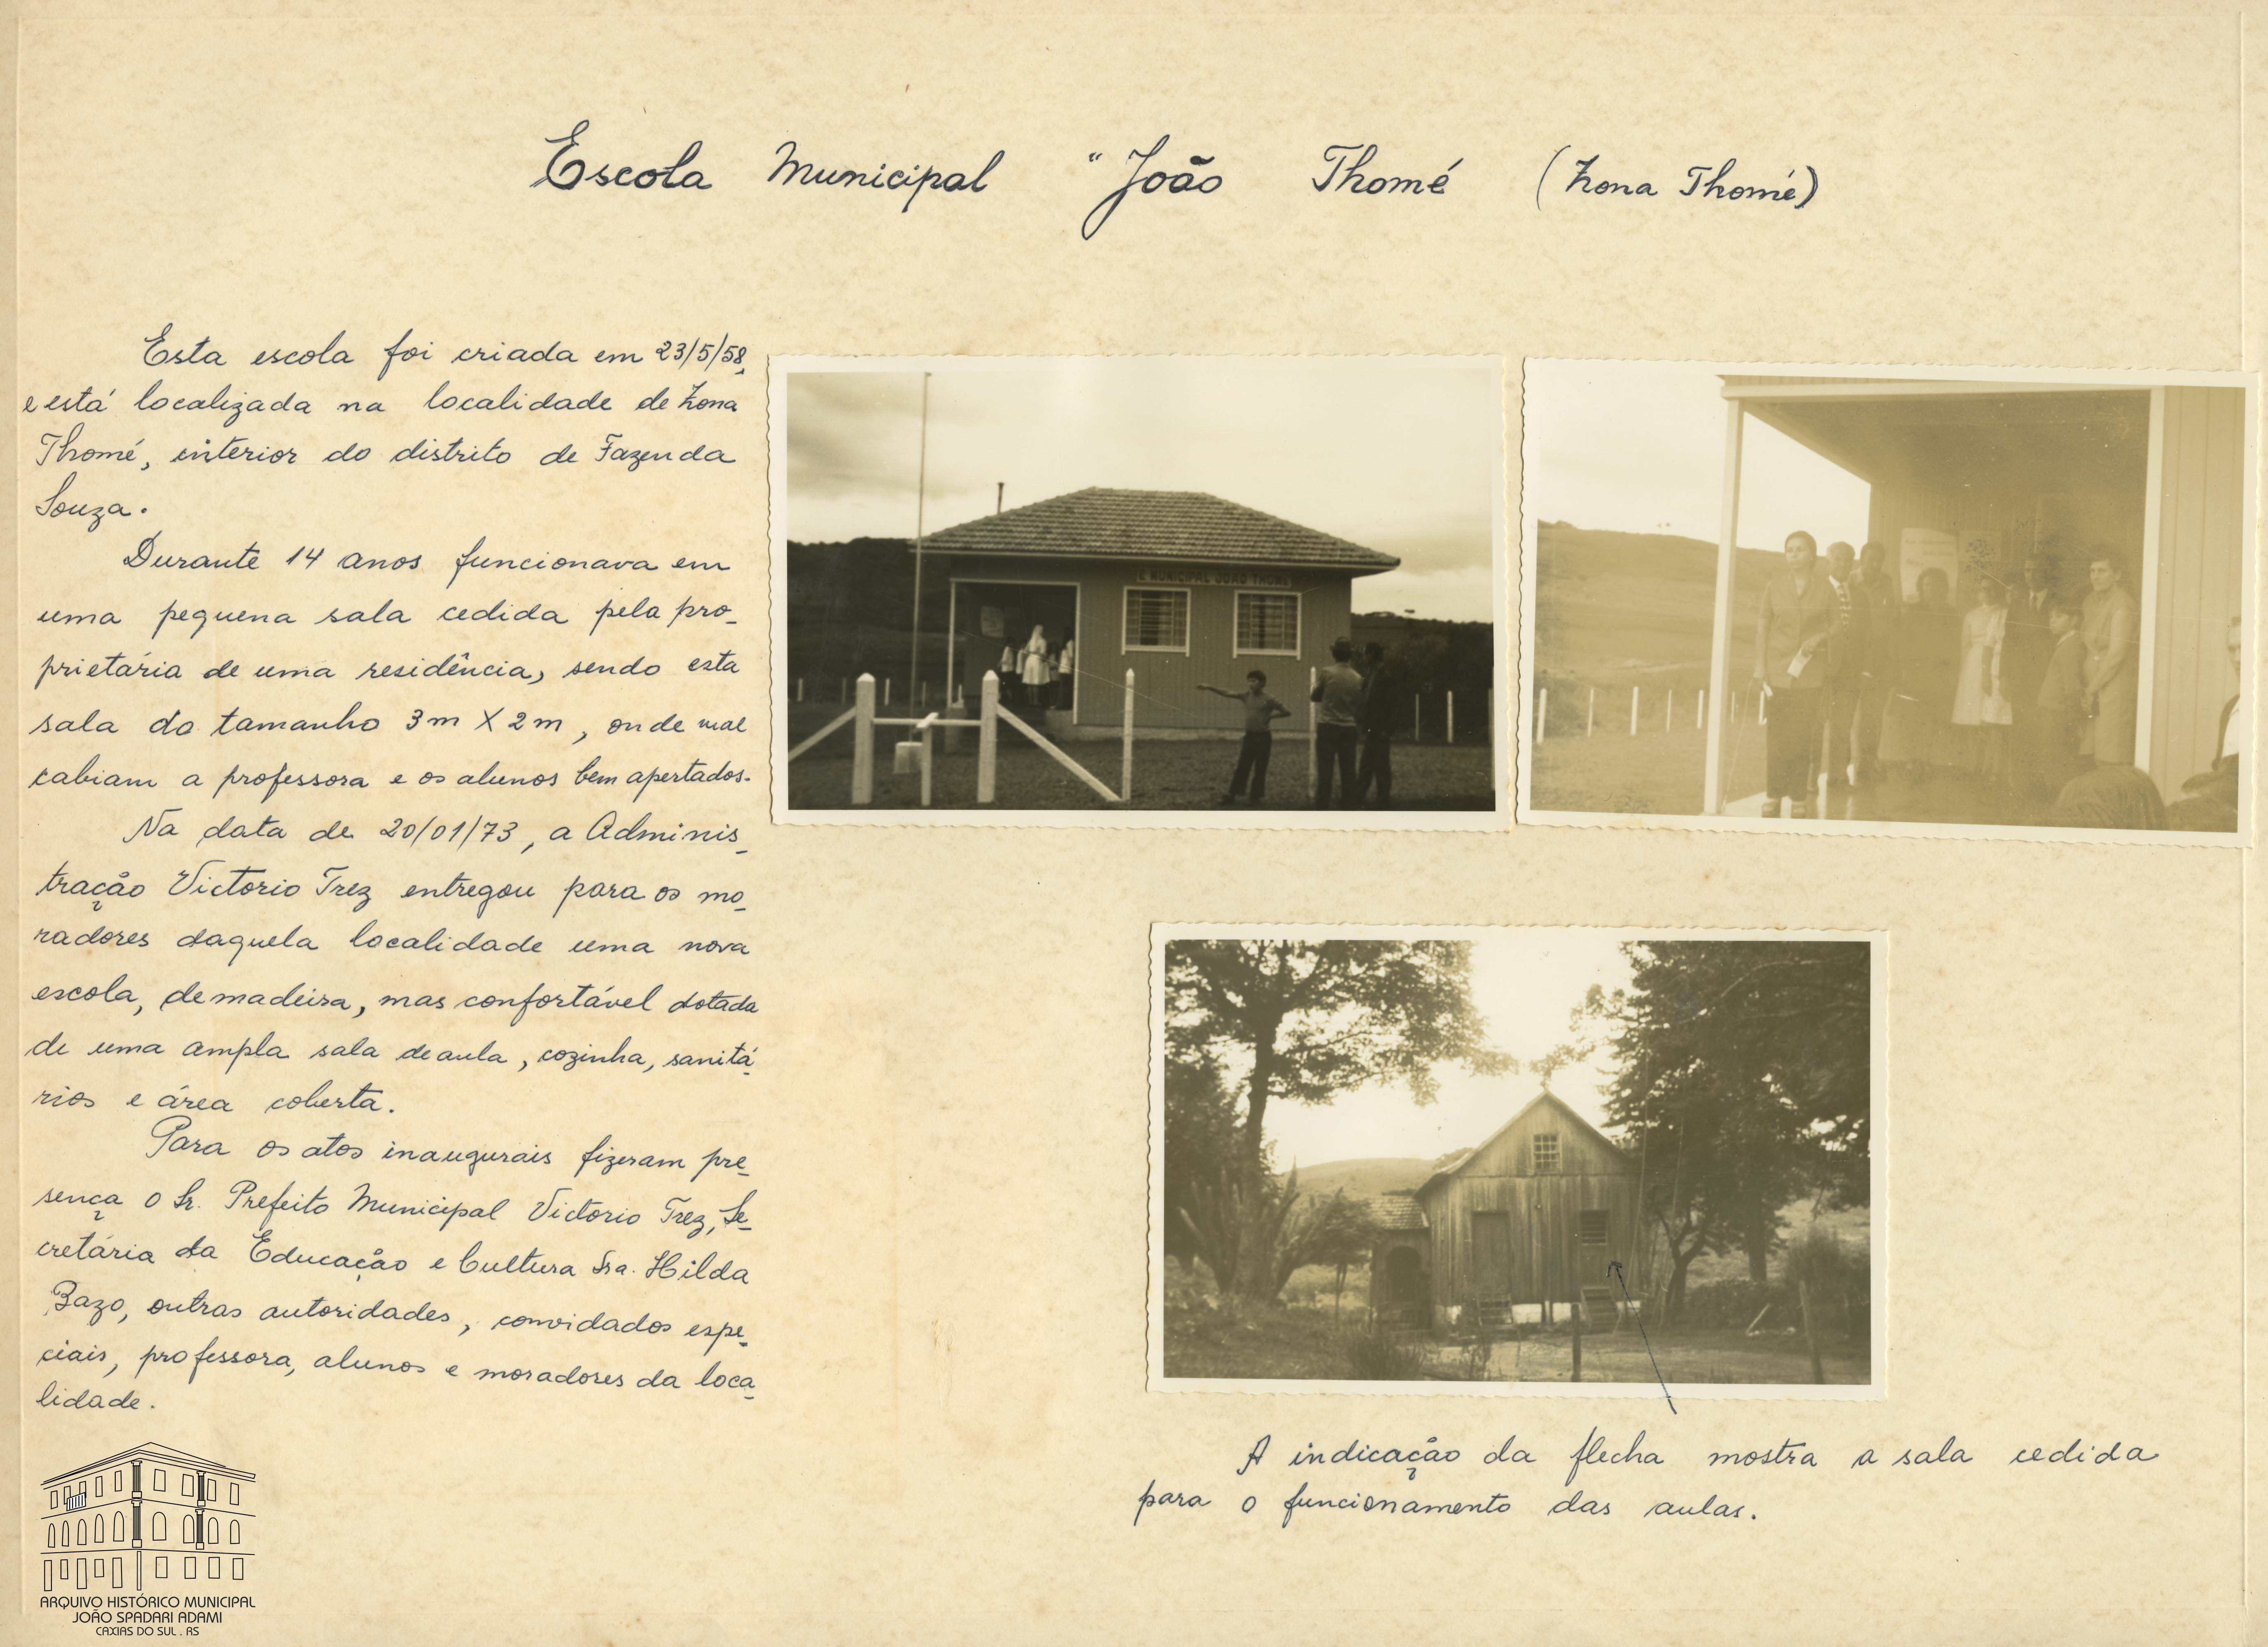 Escola Municipal "João Thomé (Zona Thomé)
Esta escola foi criada em 23/5/58,
e está localizada na localidade de Zona
Thomé, interior do distrito de Fazenda
Souza.
Durante 14 anos funcionava em
uma pequena sala cedida pela pro_
prietária de uma residência, sendo esta
sala do tamanho 3m X 2m, onde mal
cabiam a professora e os alunos bem apertados.
Na data de 20/01/73, a Adminis_
tração Victorio Trez entregou para os mo_
radores daquela localidade uma nova
escola, de madeira, mas confortável dotada
de uma ampla sala de aula, cozinha, sanitá_
rios e área coberta.
Para os atos inaugurais fizeram pre_
sença o Sr. Prefeito Municipal Victorio Trez, Se_
cretária da Educação e Cultura Sra. Hilda
Bazo, outras autoridades, convidados espe_
ciais, professora, alunos e moradores da loca_
lidade.
E MUNICIPAL JOÃO THOMÉ
A indicação da flecha mostra a sala cedida
para o funcionamento das aulas.
ARQUIVO HISTÓRICO MUNICIPAL
JOÃO SPADARI ADAMI
CAXIAS DO SUL . RS